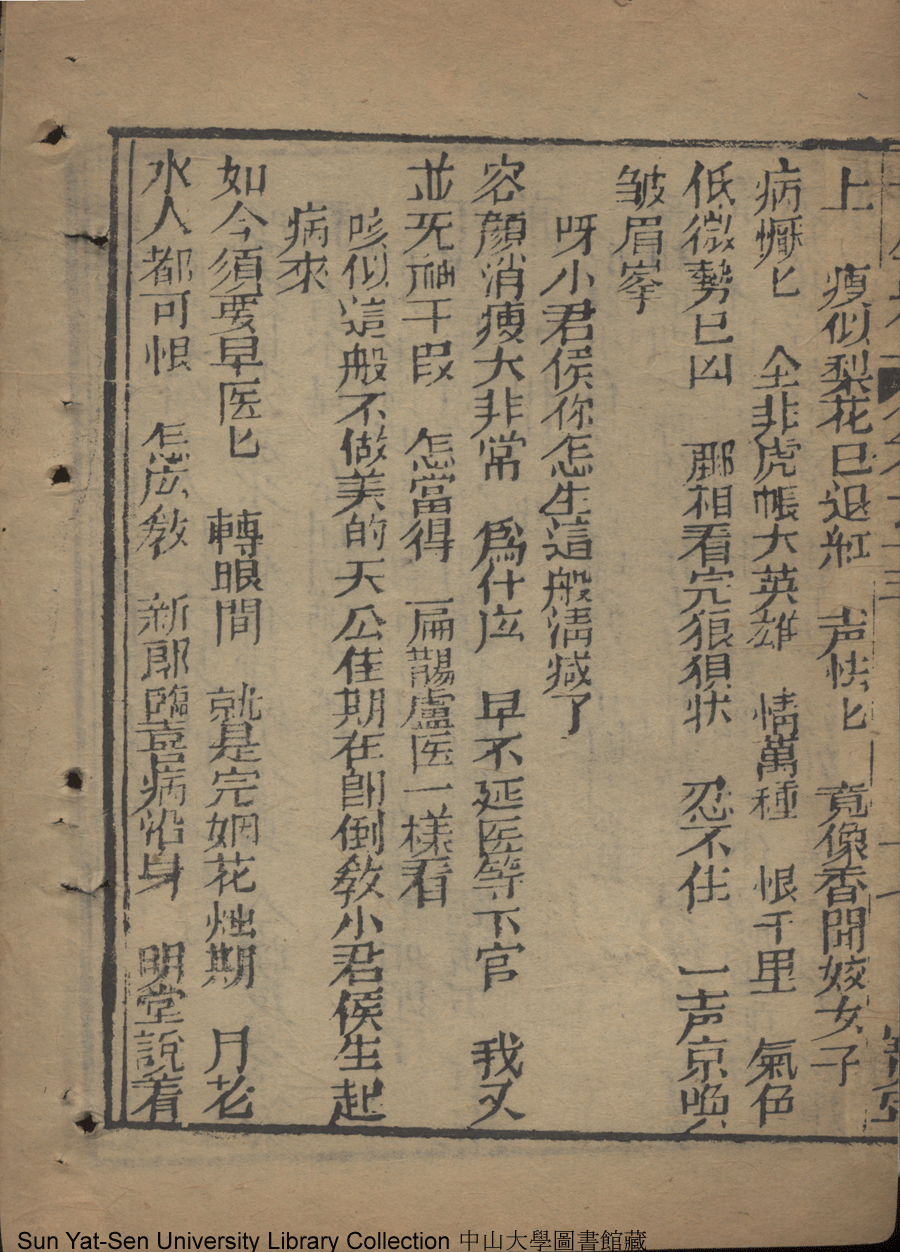 上 瘦似梨花巳退紅 声怯匕 竟像香閨姣女子
病懨匕 全非虎帳大英雄 情萬種 恨千里 氣色
低微勢巳凶 郡相看完狼狽状 忍不住 一声京喚
皱眉峯
呀小君侯你怎生這般淸减了
容顔消瘦大非常 爲什庅 早不延医等下官 我又
並旡衶干叚 怎當得 扁鵲盧医一樣看
咳似這般不做美的天公佳期在卽倒敎小君侯生起
病來
如今須要早医匕 轉眼間 就是完姻花烛期 月老
氷人都可恨 怎庅敎 新郎臨喜病沿身 明堂說着
Sun Yat-Sen University Library Collection 中山大學圖書館藏